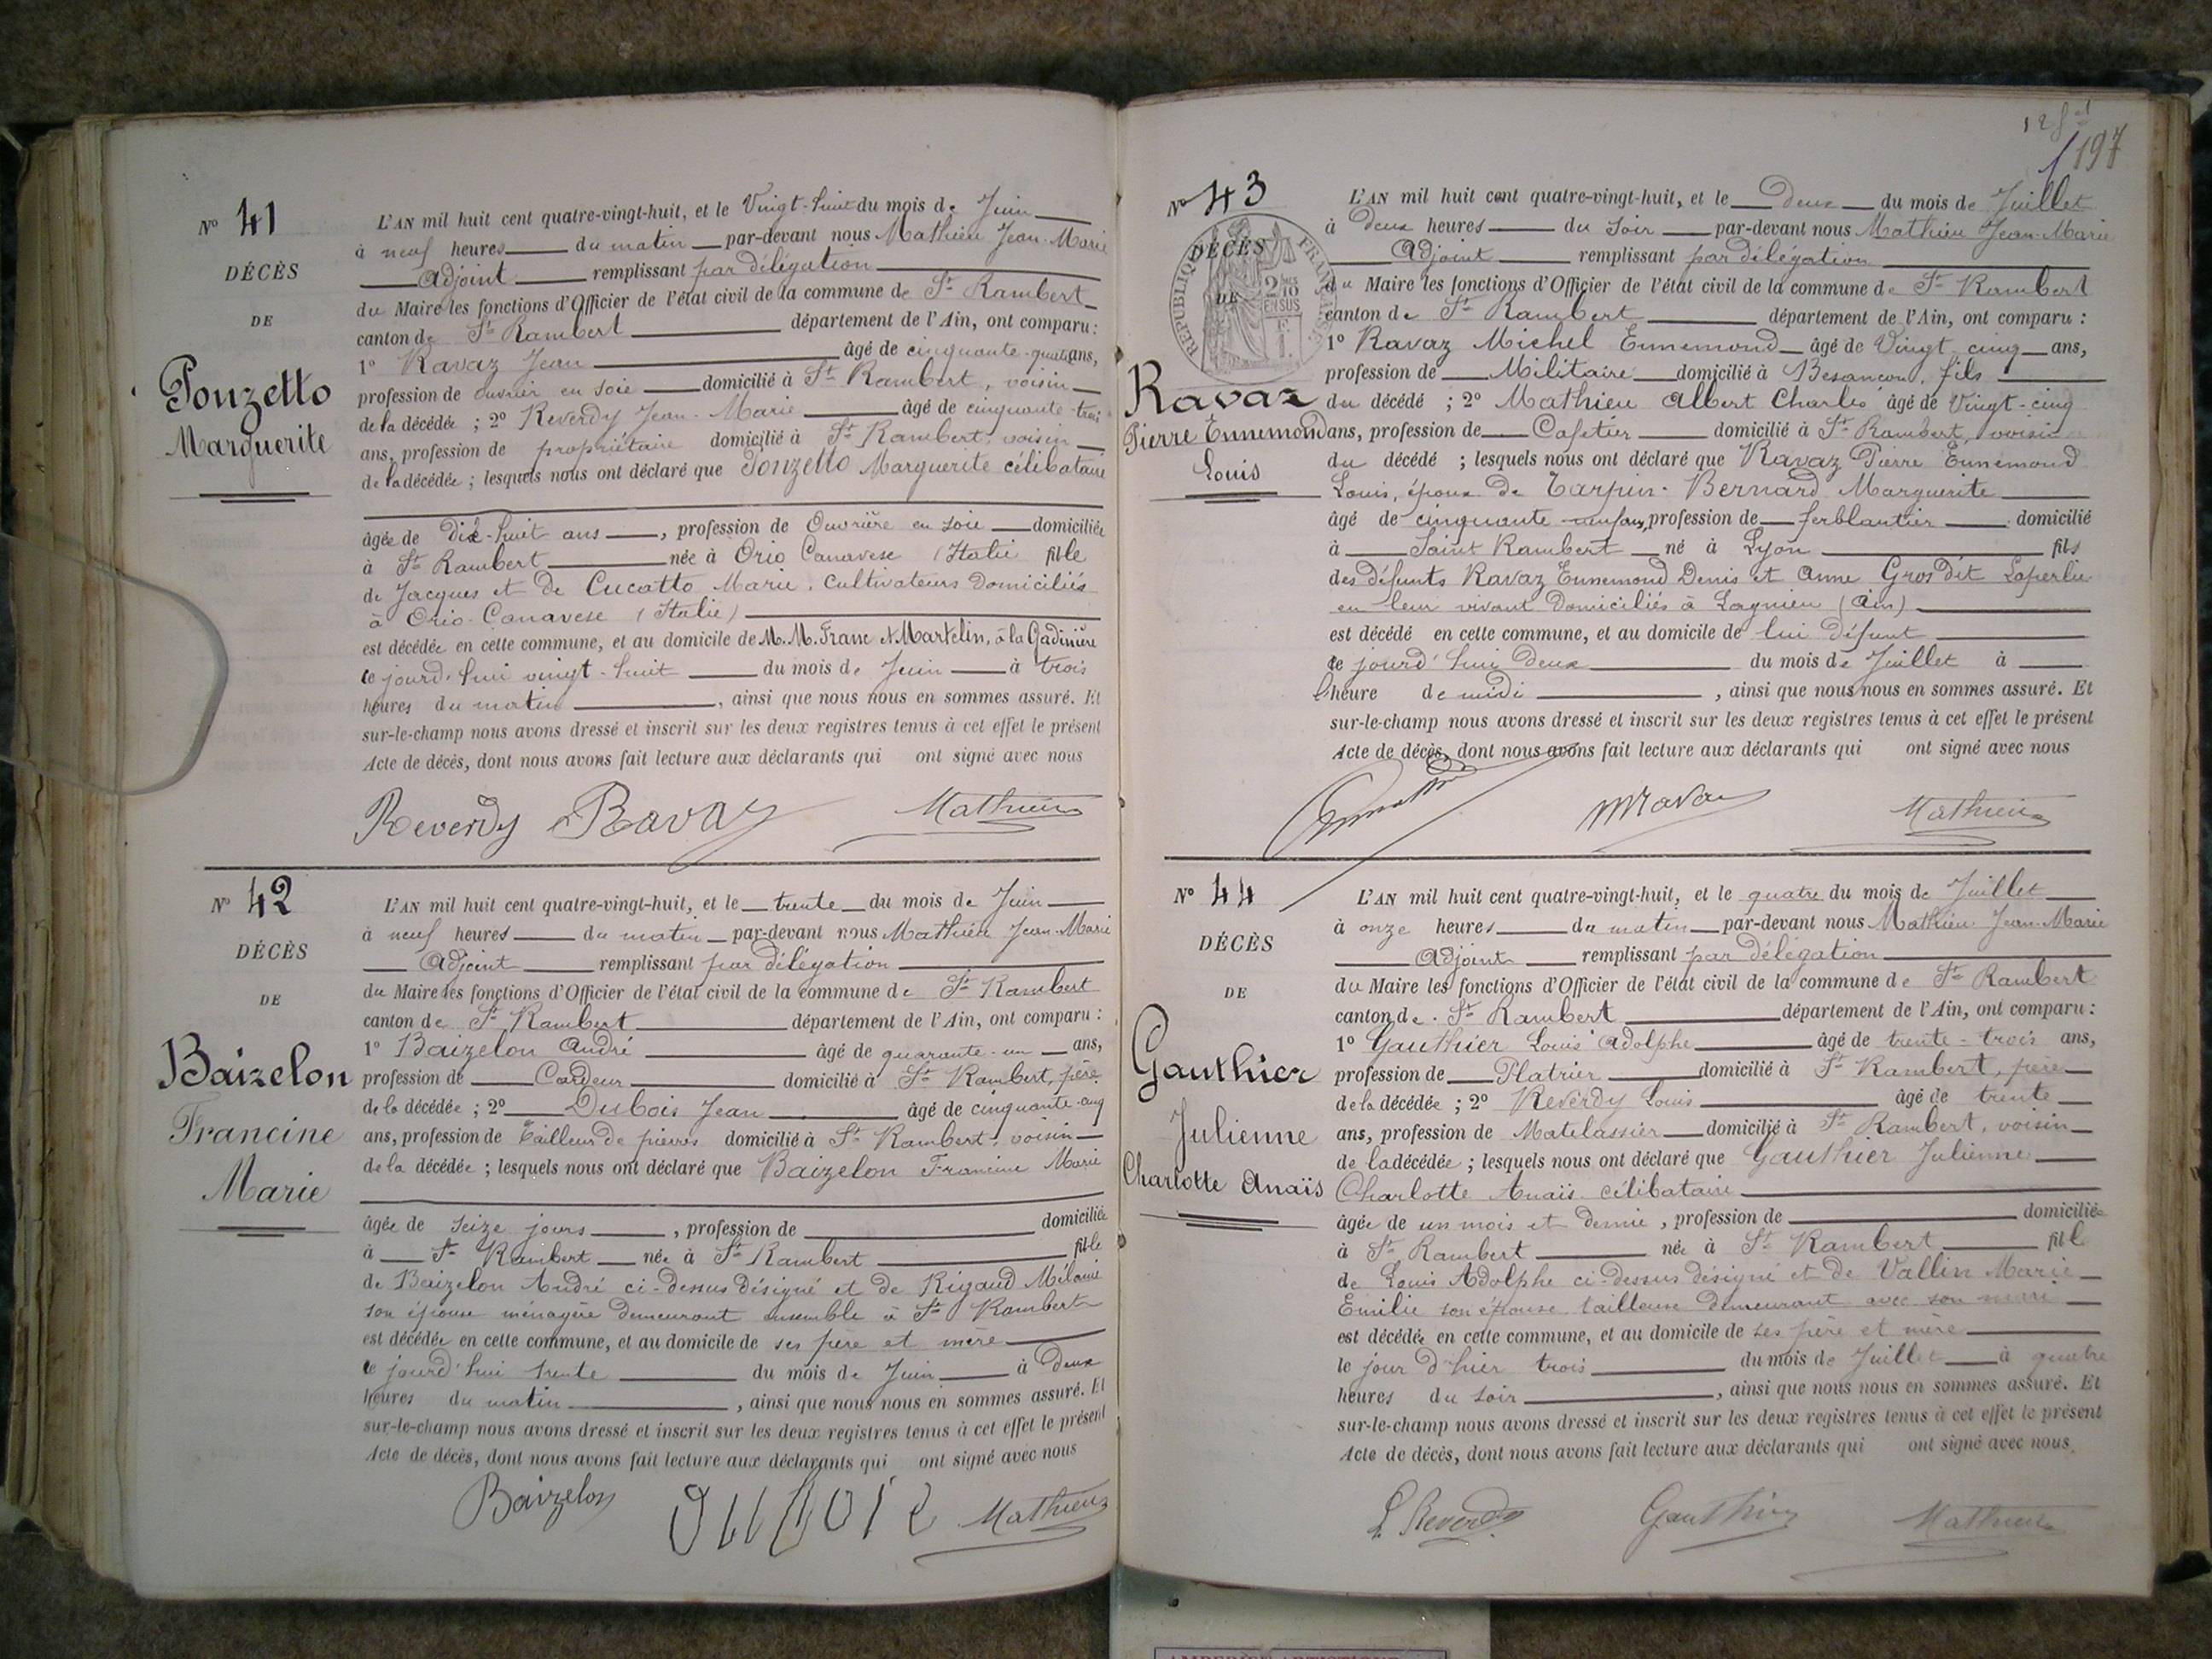 Nº 41
DÉCÈS
DE
Ponzetto
Marguerite
L'AN mil huit cent quatre-vingt-huit, et le Vingt-huit du mois de Juin
à neuf heures du matin par-devant nous Mathieu Jean-Marie
Adjoint remplissant par délégation
du Maire les fonctions d'Officier de l'état civil de la commune de St Rambert
canton de St Rambert département de l'Ain, ont comparu :
1º Ravaz Jean âgé de cinquante-quatre ans,
profession de ouvrier en soie domicilié à St Rambert, voisin
de la décédée ; 2º Reverdy Jean-Marie âgé de cinquante-trois
ans, profession de propriétaire domicilié à St Rambert, voisin
de la décédée ; lesquels nous ont déclaré que Ponzetto Marguerite célibataire
âgée de Dix-huit ans, profession de Ouvrière en soie domiciliée
à St Rambert née à Orio Canavese (Italie fille
de Jacques et de Cucatto Marie, cultivateurs domiciliés
à Orio-Canavese (Italie)
est décédée en cette commune, et au domicile de M.M. Franc et Martelin, à la Gadinière
ce jourd'hui vingt-huit du mois de Juin à trois
heures du matin, ainsi que nous nous en sommes assuré. Et
sur-le-champ nous avons dressé et inscrit sur les deux registres tenus à cet effet le présent
Acte de décès, dont nous avons fait lecture aux déclarants qui ont signé avec nous
Reverdy Ravaz Mathieu
Nº 42
DÉCÈS
DE
Baizelon
Francine
Marie
L'AN mil huit cent quatre-vingt-huit, et le trente du mois de Juin
à neuf heures du matin par-devant nous Mathieu Jean-Marie
Adjoint remplissant par délégation
du Maire les fonctions d'Officier de l'état civil de la commune de St Rambert
canton de St Rambert département de l'Ain, ont comparu :
1º Baizelon André âgé de quarante-un ans,
profession de Cardeur domicilié à St Rambert, père
de la décédée ; 2º Dubois Jean âgé de cinquante-cinq
ans, profession de Tailleur de pierres domicilié à St Rambert, voisin
de la décédée ; lesquels nous ont déclaré que Baizelon Francine Marie
âgée de seize jours, profession de domiciliée
à St Rambert née à St Rambert fille
de Baizelon André ci-dessus désigné et de Rigaud Mélanie
son épouse ménagère demeurant ensemble à St Rambert
est décédée en cette commune, et au domicile de ses père et mère
ce jourd'hui trente du mois de Juin à Deux
heures du matin, ainsi que nous nous en sommes assuré. Et
sur-le-champ nous avons dressé et inscrit sur les deux registres tenus à cet effet le présent
Acte de décès, dont nous avons fait lecture aux déclarants qui ont signé avec nous
Baizelon Dubois Mathieu
197
Nº 43
DÉCÈS
DE
RÉPUBLIQUE FRANÇAISE
2/10 EN SUS
Ravaz
Pierre Ennemond
Louis
L'AN mil huit cent quatre-vingt-huit, et le Deux du mois de Juillet
à Deux heures du soir par-devant nous Mathieu Jean-Marie
Adjoint remplissant par délégation
du Maire les fonctions d'Officier de l'état civil de la commune de St Rambert
canton de St Rambert département de l'Ain, ont comparu :
1º Ravaz Michel Ennemond âgé de Vingt cinq ans,
profession de Militaire domicilié à Besançon, fils
du décédé ; 2º Mathieu Albert Charles âgé de Vingt-cinq
ans, profession de Cafetier domicilié à St Rambert, voisin
du décédé ; lesquels nous ont déclaré que Ravaz Pierre Ennemond
Louis, époux de Tarpin-Bernard Marguerite
âgé de cinquante-neuf ans, profession de ferblantier domicilié
à Saint Rambert né à Lyon fils
des défunts Ravaz Ennemond Denis et Anne Gros dit Laperlie
en leur vivant domiciliés à Lagnieu (Ain)
est décédé en cette commune, et au domicile de lui défunt
ce jourd'hui Deux du mois de Juillet à
l'heure de midi, ainsi que nous nous en sommes assuré. Et
sur-le-champ nous avons dressé et inscrit sur les deux registres tenus à cet effet le présent
Acte de décès, dont nous avons fait lecture aux déclarants qui ont signé avec nous
MRavaz Mathieu
Nº 44
DÉCÈS
DE
Gauthier
Julienne
Charlotte Anaïs
L'AN mil huit cent quatre-vingt-huit, et le quatre du mois de Juillet
à onze heures du matin par-devant nous Mathieu Jean-Marie
Adjoint remplissant par délégation
du Maire les fonctions d'Officier de l'état civil de la commune de St Rambert
canton de St Rambert département de l'Ain, ont comparu :
1º Gauthier Louis Adolphe âgé de trente-trois ans,
profession de Platrier domicilié à St Rambert, père
de la décédée ; 2º Reverdy Louis âgé de trente
ans, profession de Matelassier domicilié à St Rambert, voisin
de la décédée ; lesquels nous ont déclaré que Gauthier Julienne
Charlotte Anaïs célibataire
âgée de un mois et demie, profession de domiciliée
à St Rambert née à St Rambert fille
de Louis Adolphe ci-dessus désigné et de Vallin Marie
Emilie son épouse tailleuse demeurant avec son mari
est décédée en cette commune, et au domicile de ses père et mère
le jour d'hier trois du mois de Juillet à quatre
heures du soir, ainsi que nous nous en sommes assuré. Et
sur-le-champ nous avons dressé et inscrit sur les deux registres tenus à cet effet le présent
Acte de décès, dont nous avons fait lecture aux déclarants qui ont signé avec nous.
L Reverdy Gauthier Mathieu